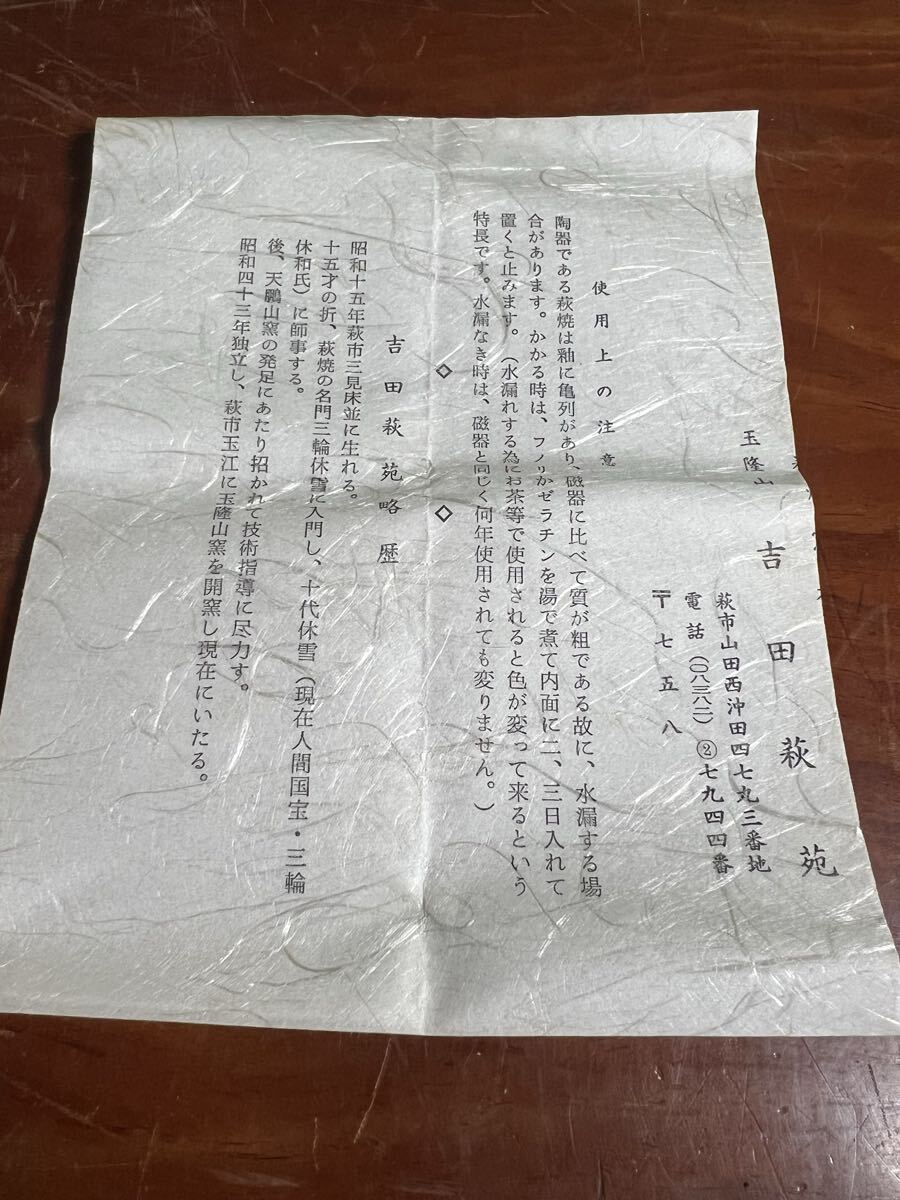 玉隆山
吉田萩苑
萩市山田西沖田四七九三番地
電話(〇八三八二)②七九四四番
〒七五八
使用上の注意
陶器である萩焼は釉に亀列があり、磁器に比べて質が粗である故に、水漏する場
合があります。かかる時は、フノリかゼラチンを湯で煮て内面に二、三日入れて
置くと止みます。(水漏れする為にお茶等で使用されると色が変って来るという
特長です。水漏なき時は、磁器と同じく何年使用されても変りません。)
◇ ◇
吉田萩苑略歴
昭和十五年萩市三見床並に生れる。
十五才の折、萩焼の名門三輪休雪に入門し、十代休雪(現在人間国宝・三輪
休和氏)に師事する。
後、天鵬山窯の発足にあたり招かれて技術指導に尽力す。
昭和四十三年独立し、萩市玉江に玉隆山窯を開窯し現在にいたる。